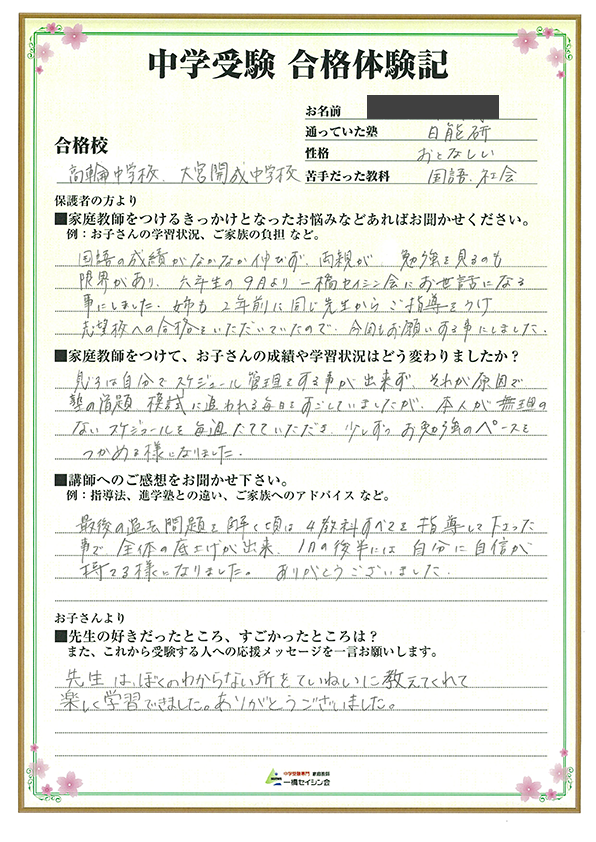 中学受験 合格体験記
お名前
通っていた塾 日能研
合格校
性格 おとなしい
高輪中学校、大宮開成中学校
苦手だった教科 国語、社会
保護者の方より
■家庭教師をつけるきっかけとなったお悩みなどあればお聞かせください。
例：お子さんの学習状況、ご家族の負担 など。
国語の成績がなかなか伸びず、両親が、勉強を見るのも
限界があり、六年生の9月より一橋セイシン会にお世話になる
事にしました。姉も2年前に同じ先生からご指導をうけ
志望校への合格をいただいていたので、今回もお願いする事にしました。
■家庭教師をつけて、お子さんの成績や学習状況はどう変わりましたか？
息子は自分でスケジュール管理をする事が出来ず、それが原因で
塾の宿題 模試に追われる毎日をすごしていましたが、本人が無理の
ないスケジュールを毎週たてていただき、少しずつお勉強のペースを
つかめる様になりました。
■講師へのご感想をお聞かせ下さい。
例：指導法、進学塾との違い、ご家族へのアドバイス など。
最後の過去問題を解く頃は4教科すべてを指導して下さった
事で全体の底上げが出来、1月の後半には自分に自信が
持てる様になりました。 ありがとうございました。
お子さんより
■先生の好きだったところ、すごかったところは？
また、これから受験する人への応援メッセージを一言お願いします。
先生は、ぼくのわからない所をていねいに教えてくれて
楽しく学習できました。ありがとうございました。
中学受験専門 家庭教師
一橋セイシン会